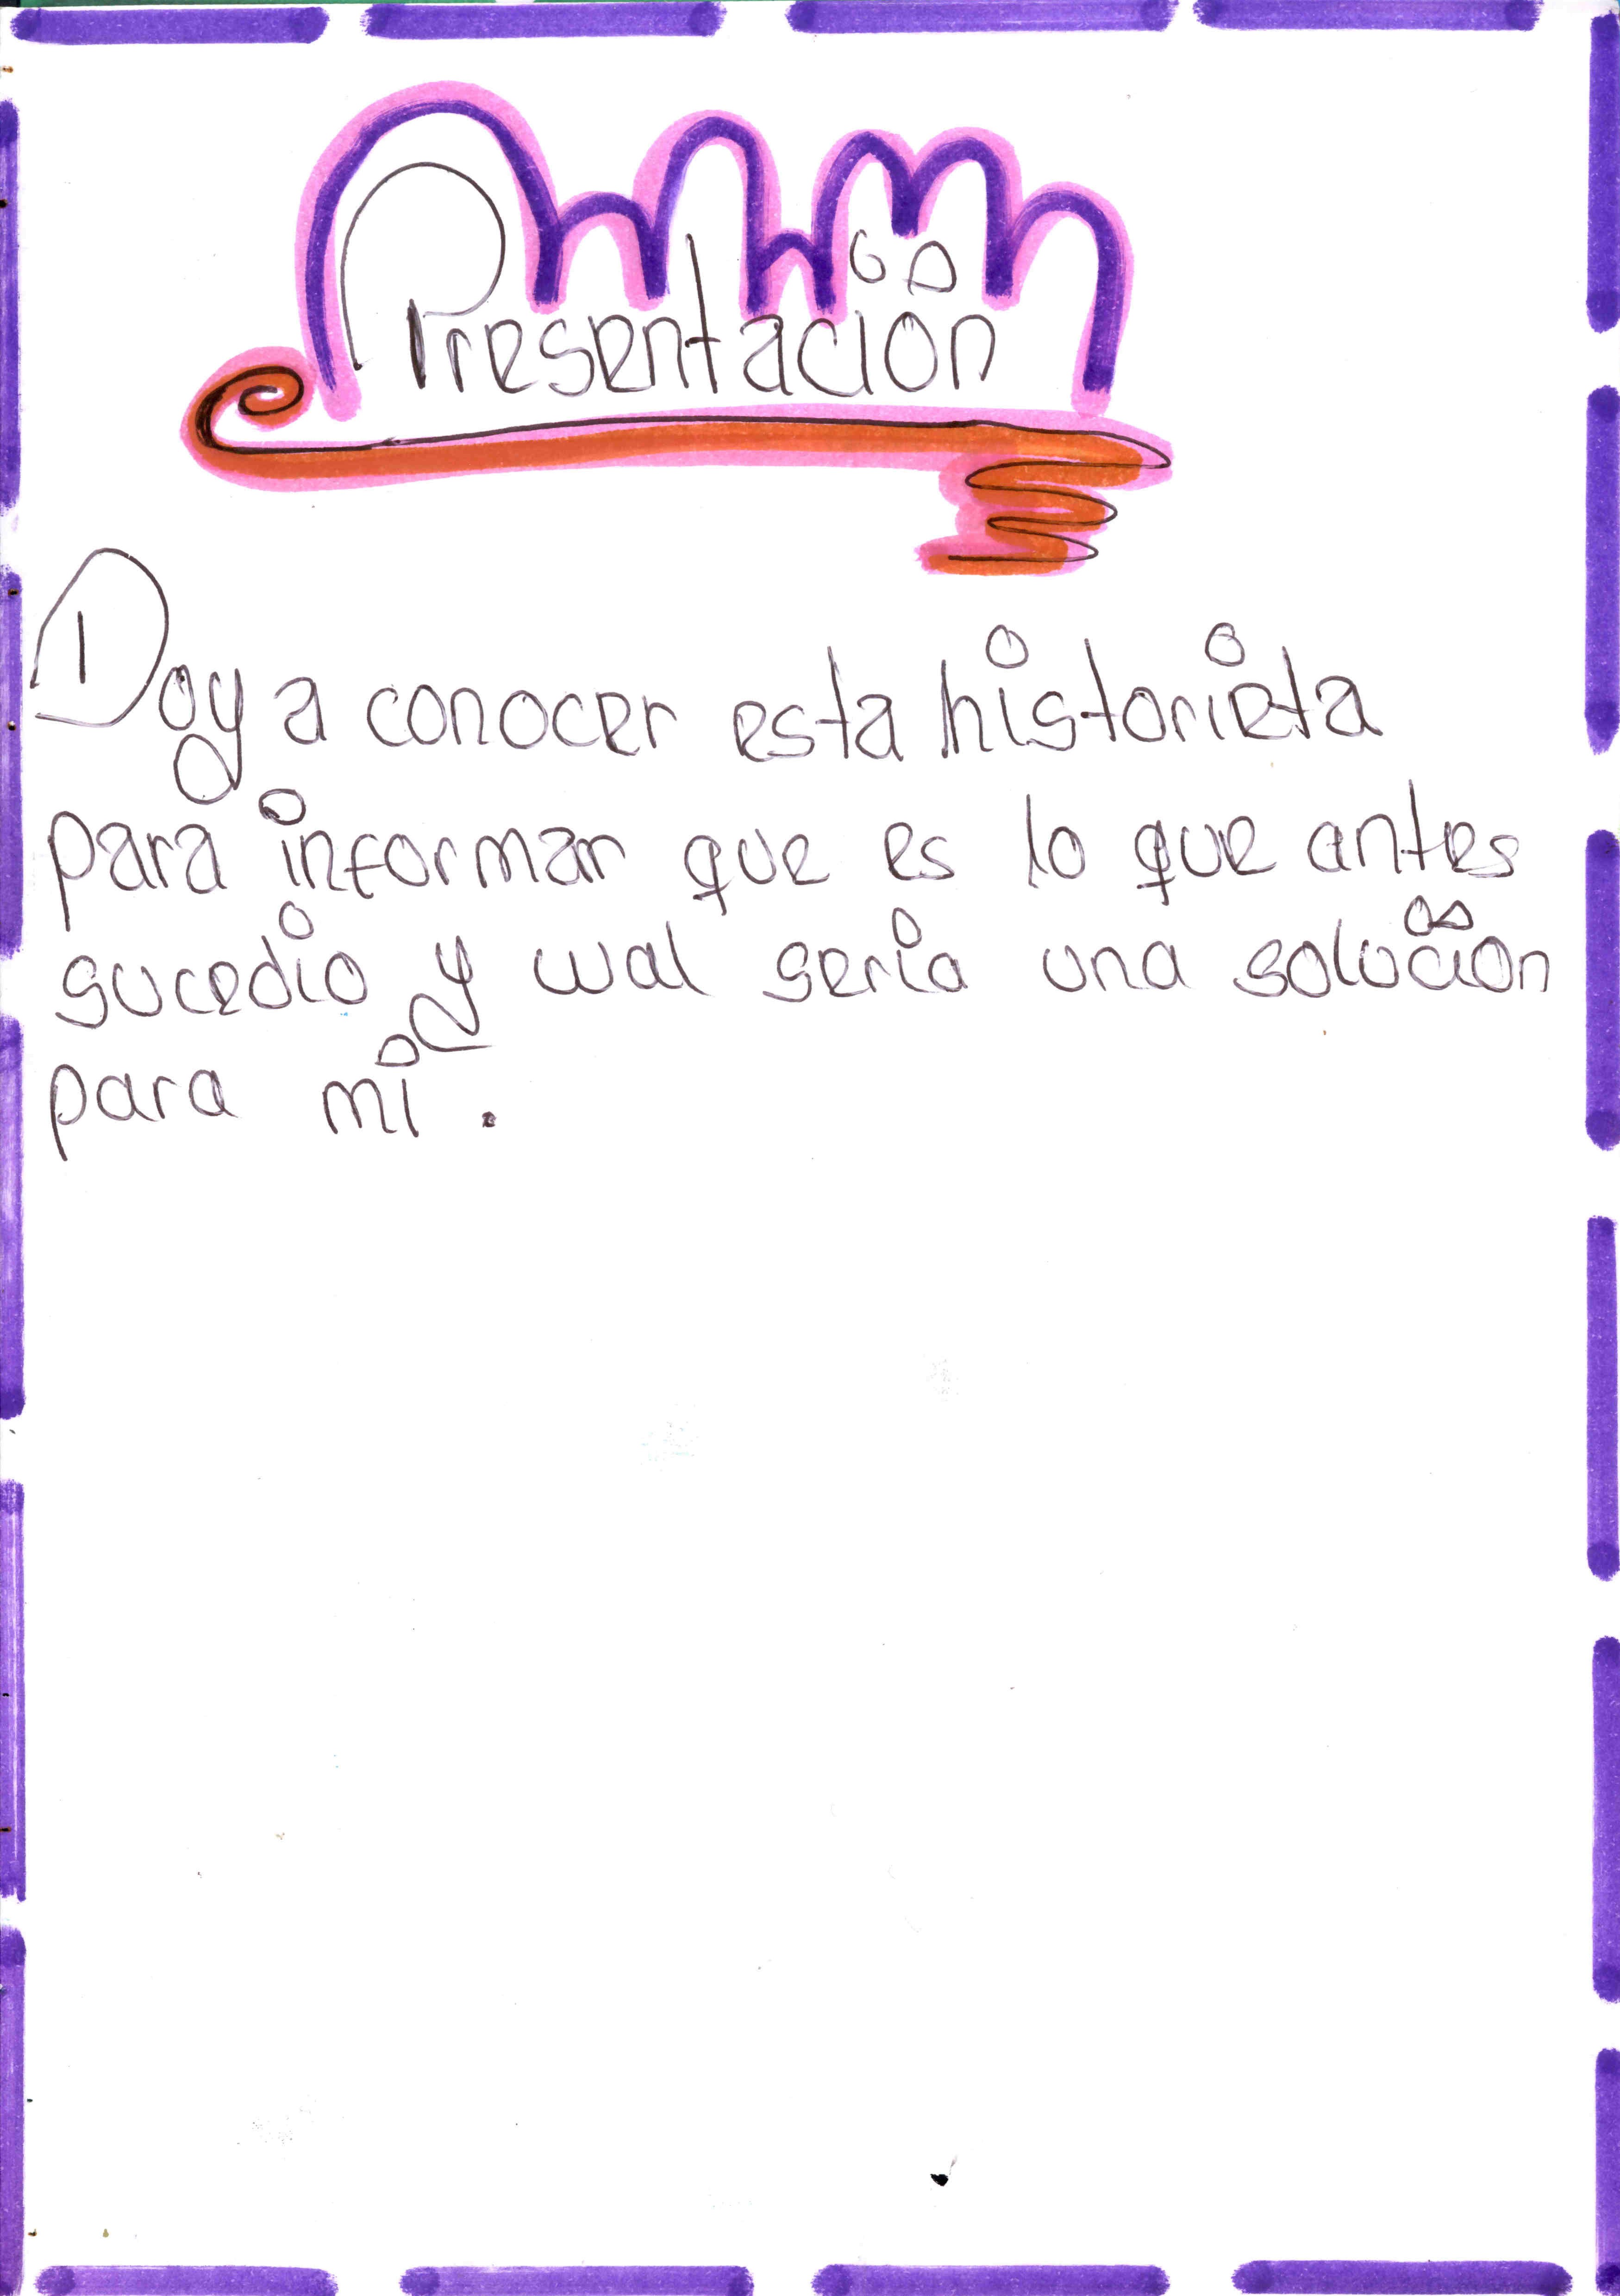 Presentación
Doy a conocer esta historieta
para informar que es lo que antes
sucedio y cual seria una solución
para mi.